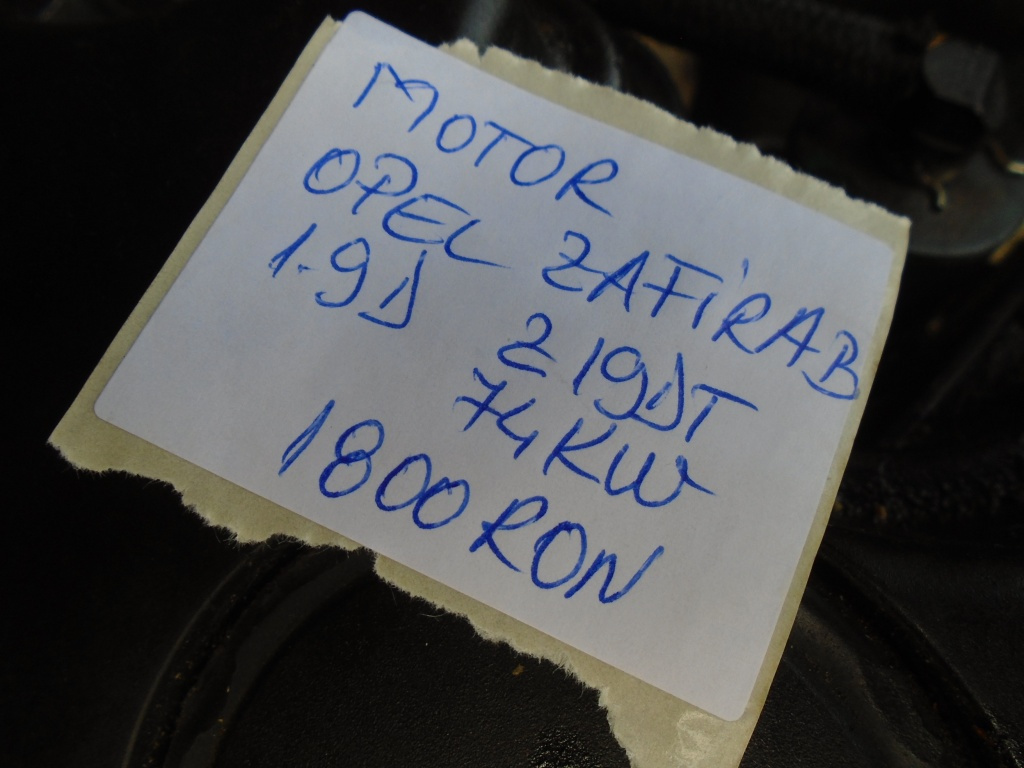 MOTOR
OPEL ZAFIRA B
1.9D Z19DT
74KW
1800 RON